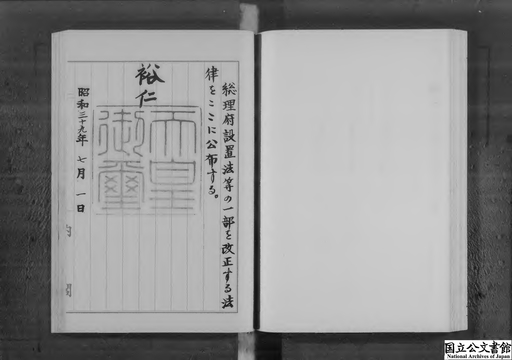 総理府設置法等の一部を改正する法
律をここに公布する。
裕仁
天皇
御璽
昭和三十九年七月一日
国立公文書館
National Archives of Japan